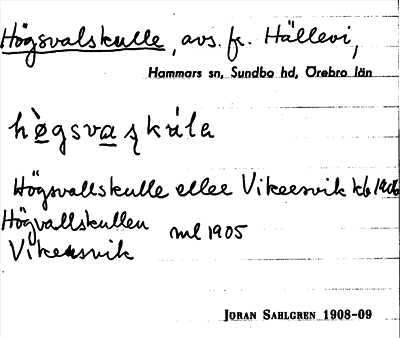 Högsvalskulle, avs. fr. Hällevi,
Hammars sn, Sundbo hd, Örebro län
hø̀gsvaskúla
Högsvallskulle eller Vikersvik kb 1906
Högvallskullen ml 1905
Vikersvik
JÖRAN SAHLGREN 1908-09